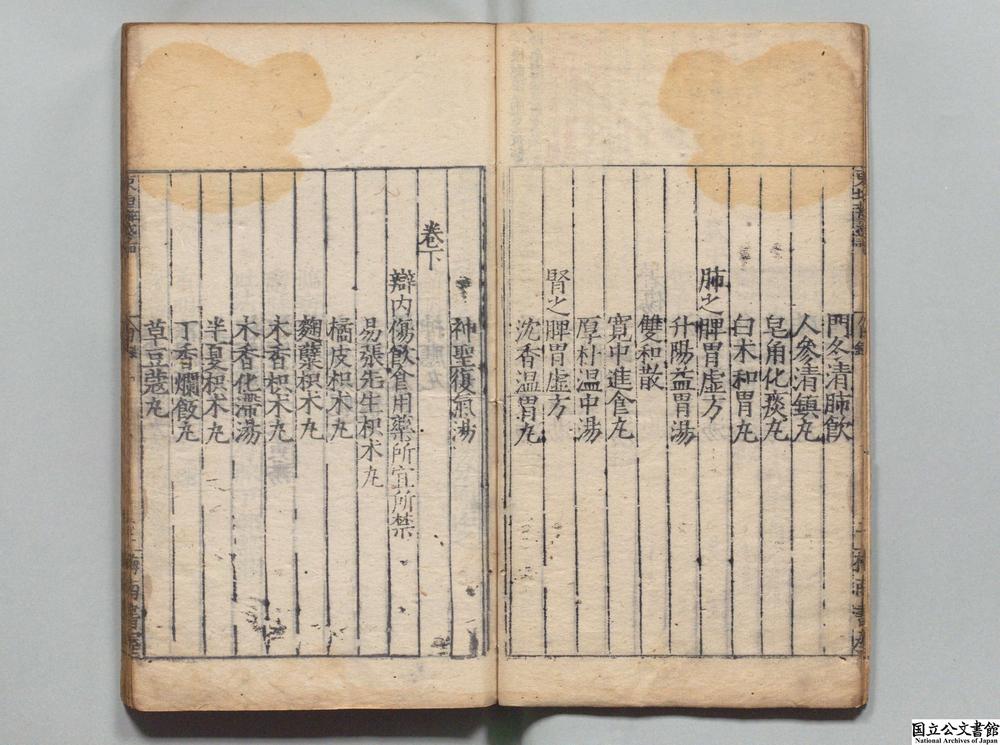 門冬清肺飲
人參清鎮丸
皂角化痰丸
白术和胃丸
肺之脾胃虛方
升陽益胃湯
雙和散
寬中進食丸
厚朴温中湯
腎之脾胃虛方
沈香温胃丸
神聖復氣湯
卷下
辯内傷飲食用藥所宜所禁
易張先生枳术丸
橘皮枳术丸
麴糵枳术丸
木香枳术丸
木香化滯湯
半夏枳术丸
丁香爛飯丸
草豆蔻丸
梅南書屋
国立公文書館
National Archives of Japan